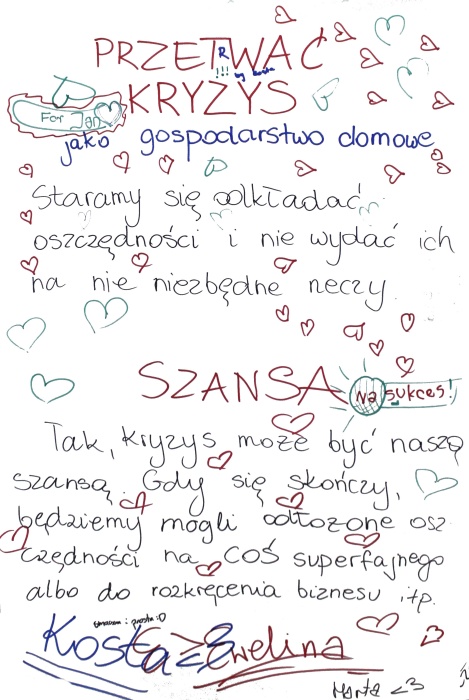 PRZETRWAĆ
!!! by kosta
KRYZYS
For Jan
jako gospodarstwo domowe
Staramy się odkładać
oszczędności i nie wydać ich
na nie niezbędne neczy
SZANSA
na sukces!
Tak, kryzys może być naszą
szansą. Gdy się skończy,
będziemy mogli odłożone osz
czędności na coś superfajnego
albo do rozkręcenia biznesu itp.
Kosta <3 Ewelina
Marta <3